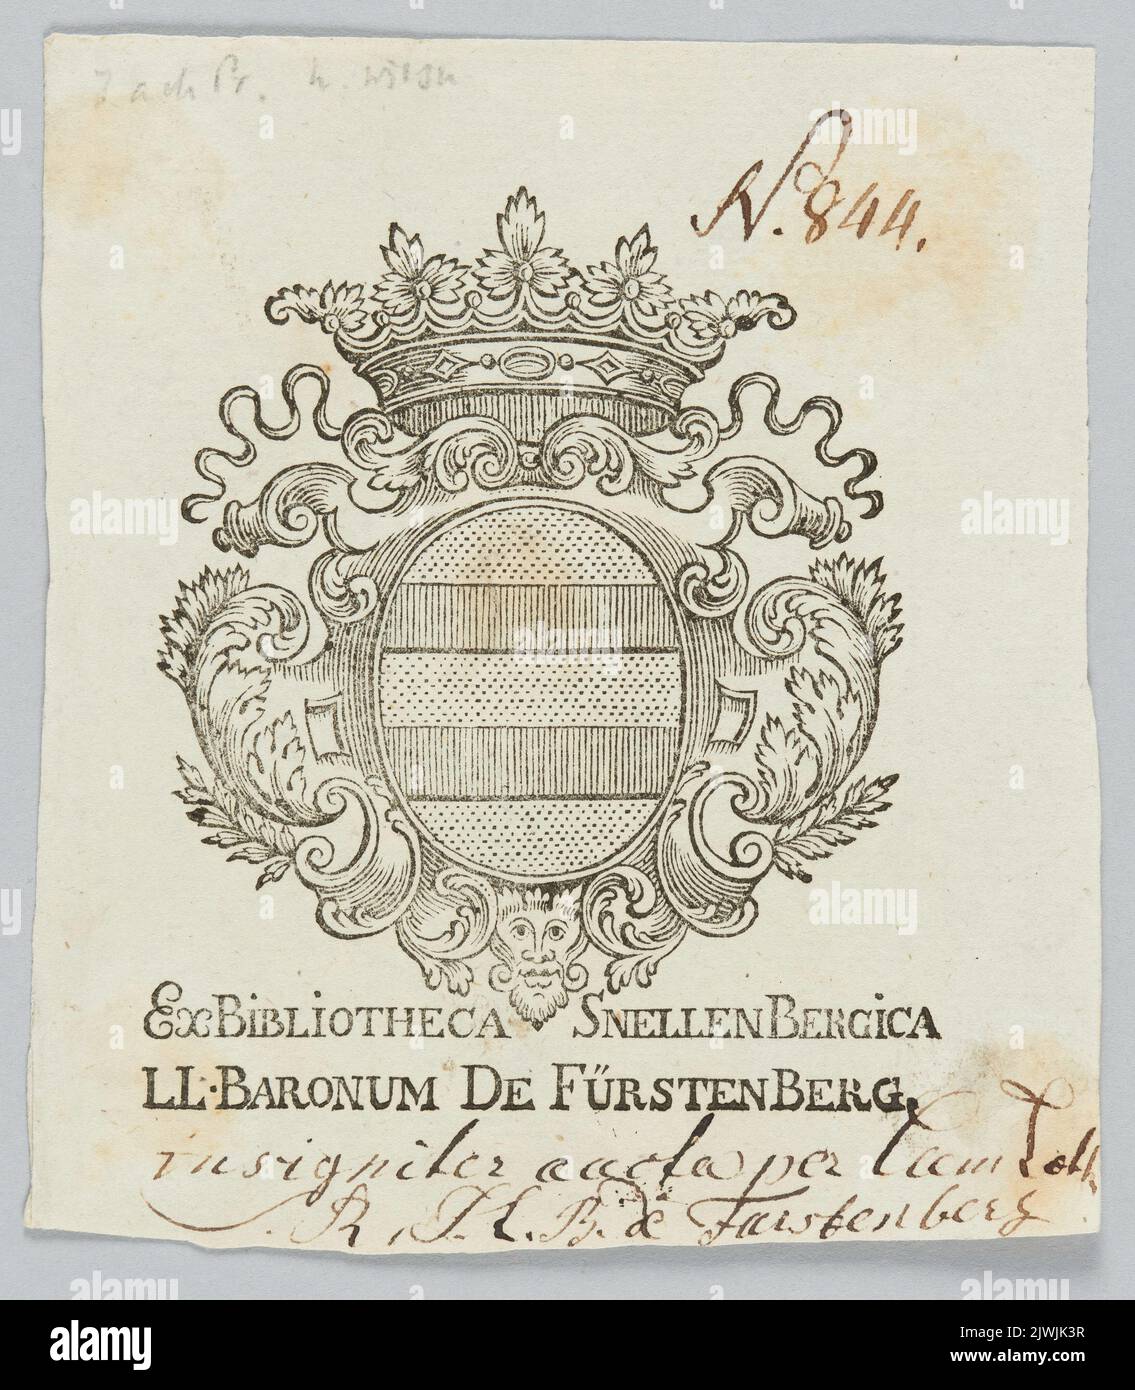 N. 844.
Ex BIBLIOTHECA SNELLENBERGICA
LL. BARONUM DE FÜRSTENBERG,
insigniter aucta per
R. I. L. B. de Furstenberg
alamy
Image ID: 2WJJK3R
www.alamy.com